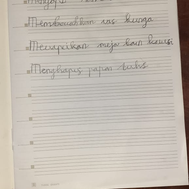 Membersihkan vas bunga
Merapikan meja dan kursi
Menghapus papan tulis